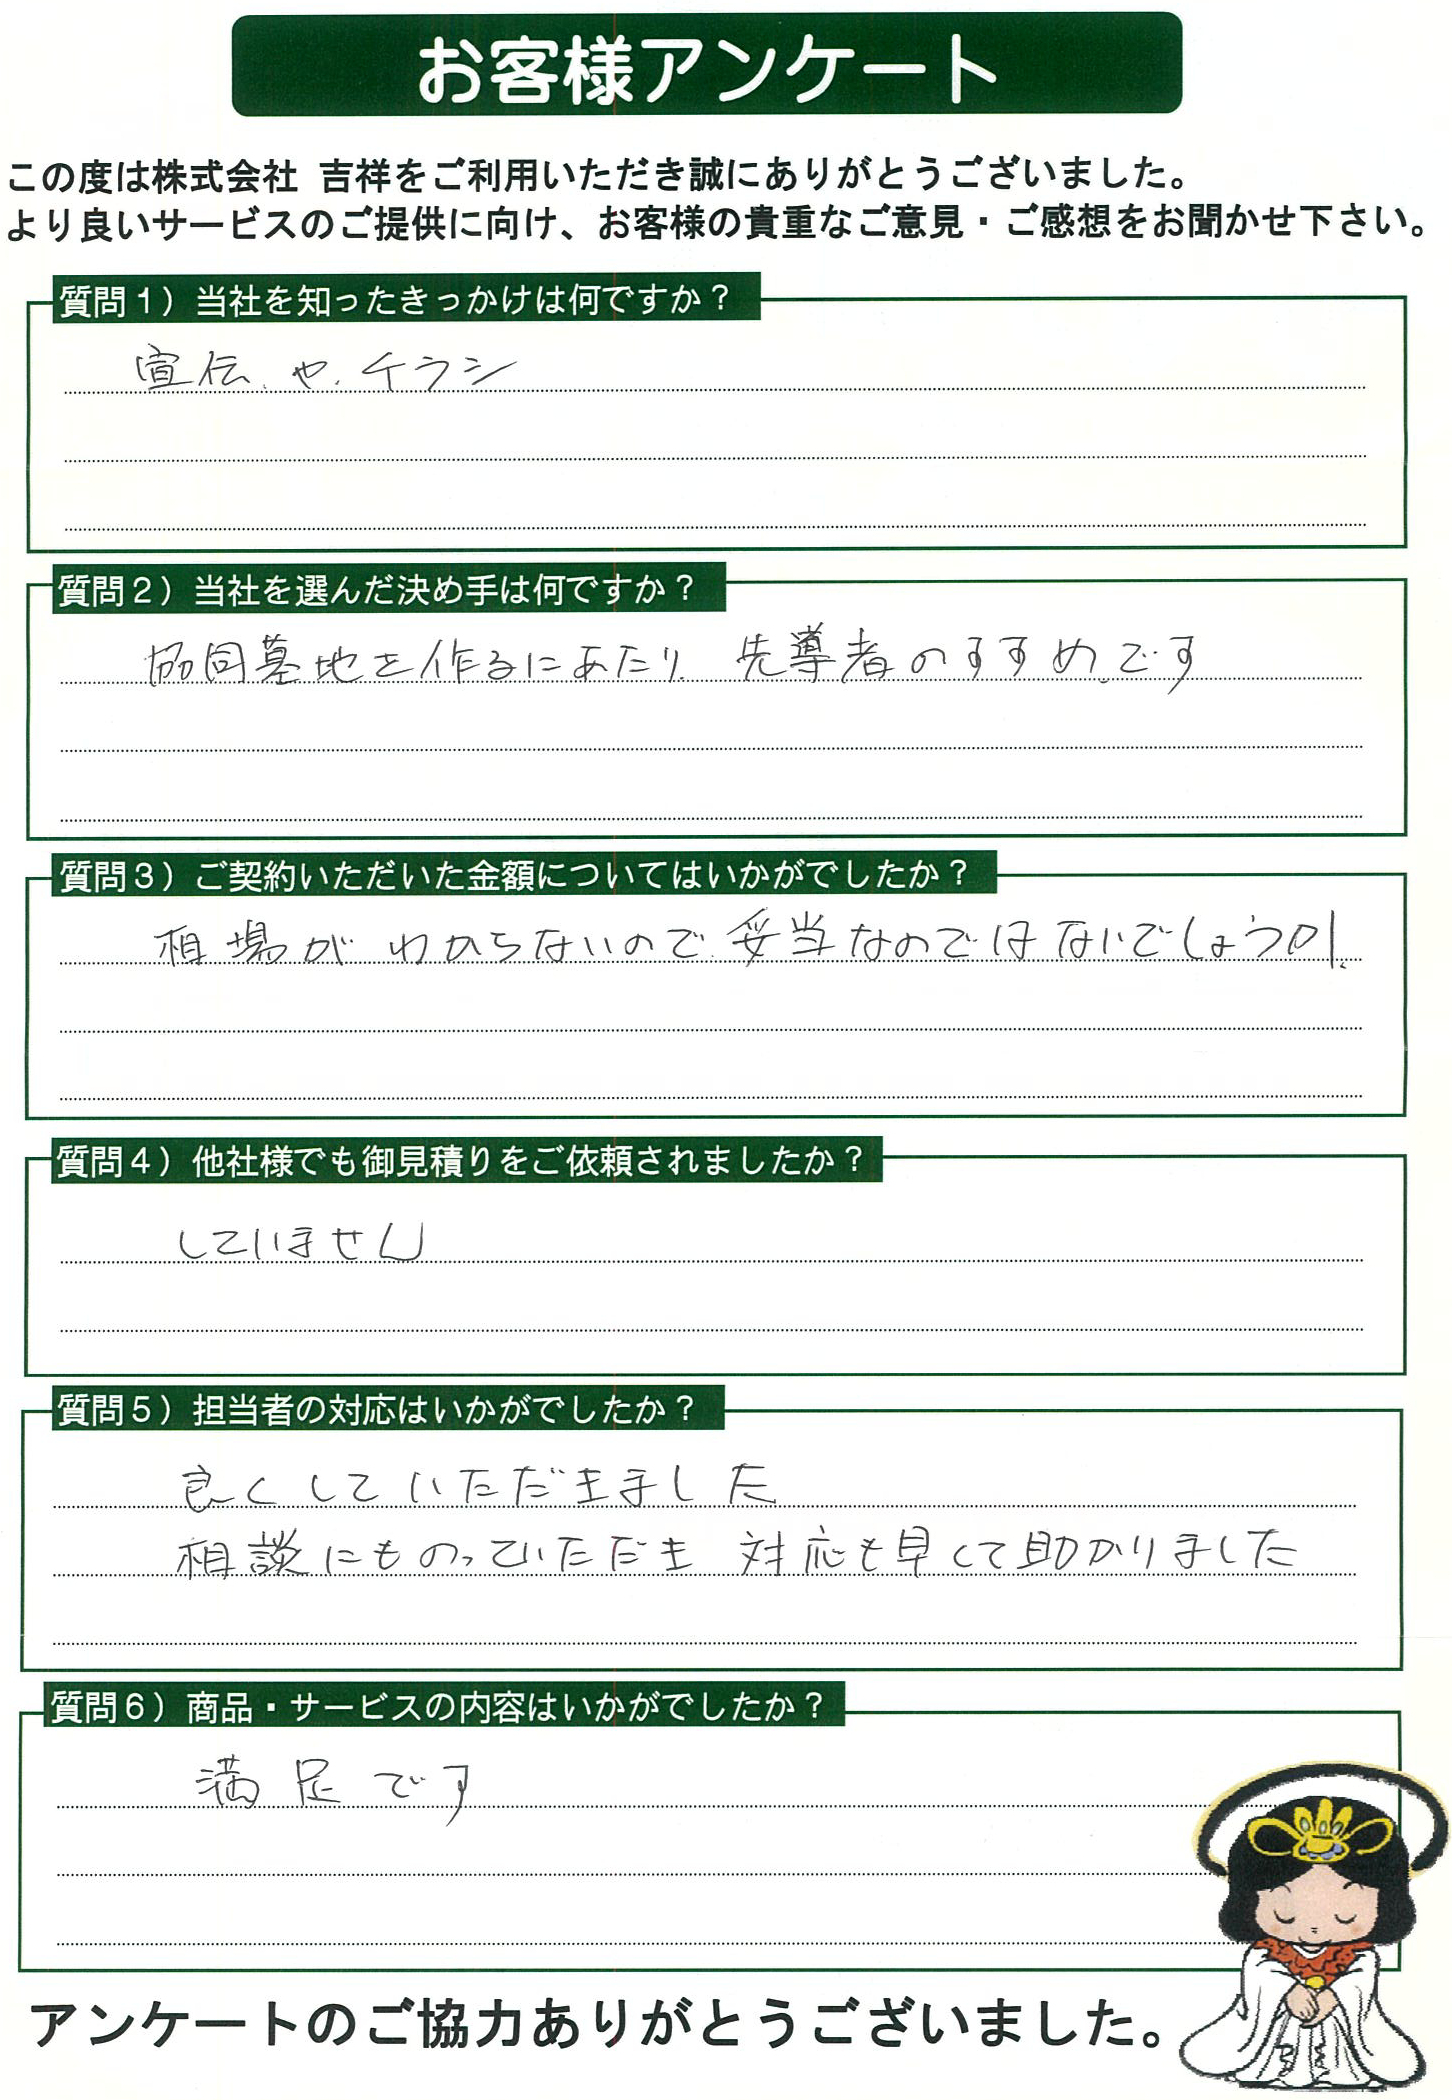 お客様アンケート
この度は株式会社 吉祥をご利用いただき誠にありがとうございました。
より良いサービスのご提供に向け、お客様の貴重なご意見・ご感想をお聞かせ下さい。
質問1）当社を知ったきっかけは何ですか？
宣伝、や、チラシ
質問2）当社を選んだ決め手は何ですか？
協同墓地を作るにあたり、先導者のすすめです
質問3）ご契約いただいた金額についてはいかがでしたか？
相場がわからないので、妥当なのではないでしょうか。
質問4）他社様でも御見積りをご依頼されましたか？
していません
質問5）担当者の対応はいかがでしたか？
良くしていただきました
相談にものっていただき 対応も早くて助かりました
質問6）商品・サービスの内容はいかがでしたか？
満足です
アンケートのご協力ありがとうございました。